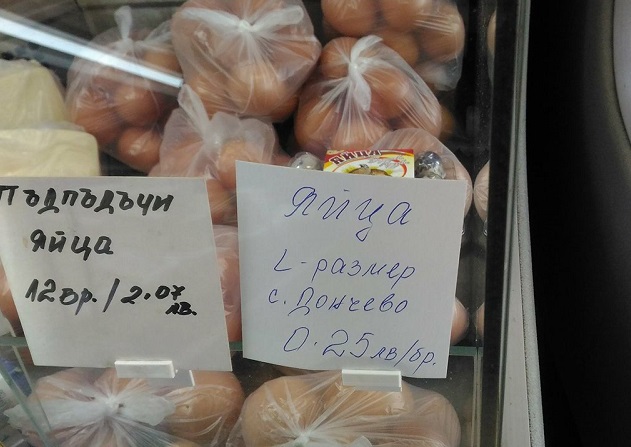 Пъдпъдъчи
яйца
12бр./2.07
лв.
Яйца
L-размер
с. Дончево
0.25лв/бр.